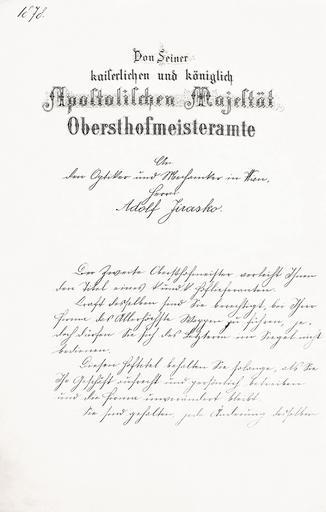 1878.
Von Seiner
kaiserlichen und königlich
Apostolischen Majestät
Obersthofmeisteramte
An
den Optiker und Mechaniker in Wien,
Herrn
Adolf Jirasko.
Der Zweite Obersthofmeister verleiht Ihnen
den Titel eines k. und k. Hoflieferanten.
Kraft desselben sind Sie berechtigt, bei Ihrer
Firma das Allerhöchste Wappen zu führen, je-
doch dürfen Sie sich des Letztern im Siegel nicht
bedienen.
Diesen Hoftitel behalten Sie solange, als Sie
Ihr Geschäft aufrecht und persönlich betreiben
und die Firma unverändert bleibt.
Sie sind gehalten, jede Änderung derselben